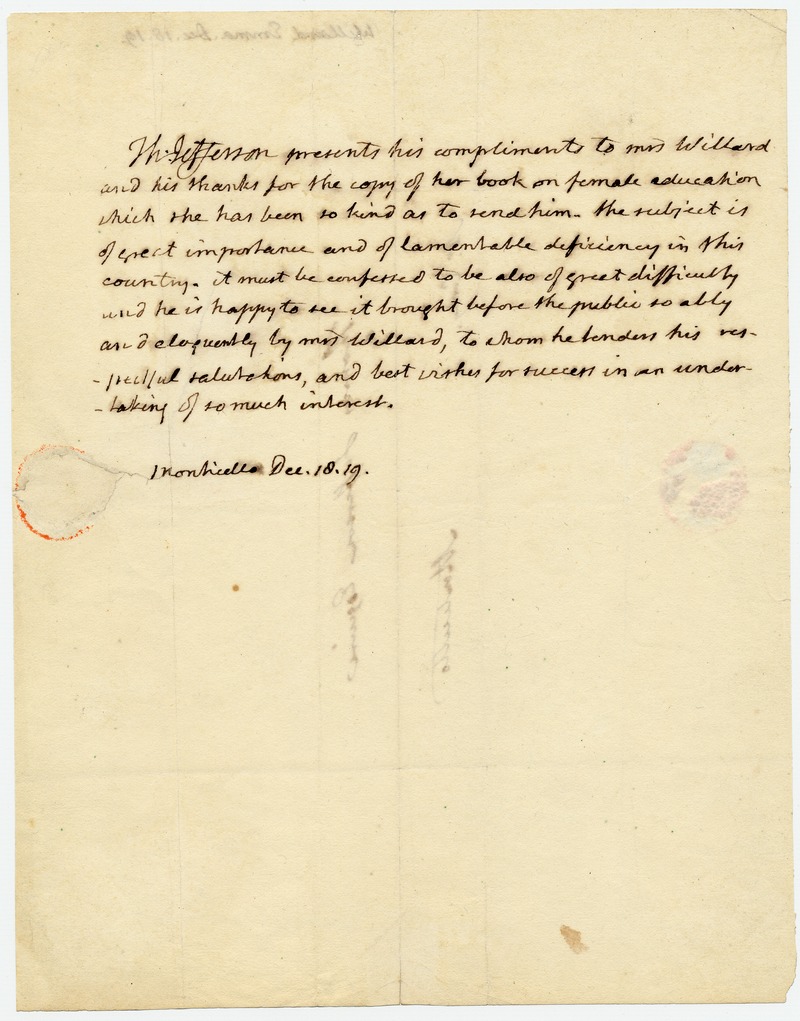 Th: Jefferson presents his compliments to mrs Willard
and his thanks for the copy of her book on female education
which she has been so kind as to send him. the subject is
of great importance and of lamentable deficiency in this
country. it must be confessed to be also of great difficulty
and he is happy to see it brought before the public so ably
and eloquently by mrs Willard, to whom he tenders his res-
-pectful salutations, and best wishes for success in an under-
-taking of so much interest.
Monticello Dec. 18. 19.